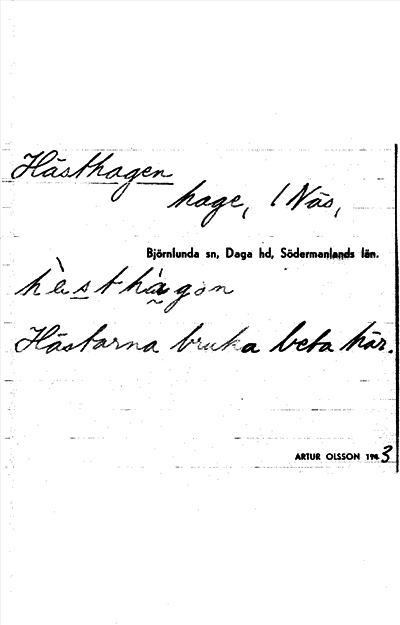 Hästhagen
hage, 1 Näs,
Björnlunda sn, Daga hd, Södermanlands län.
Hästarna bruka beta här.
ARTUR OLSSON 1943